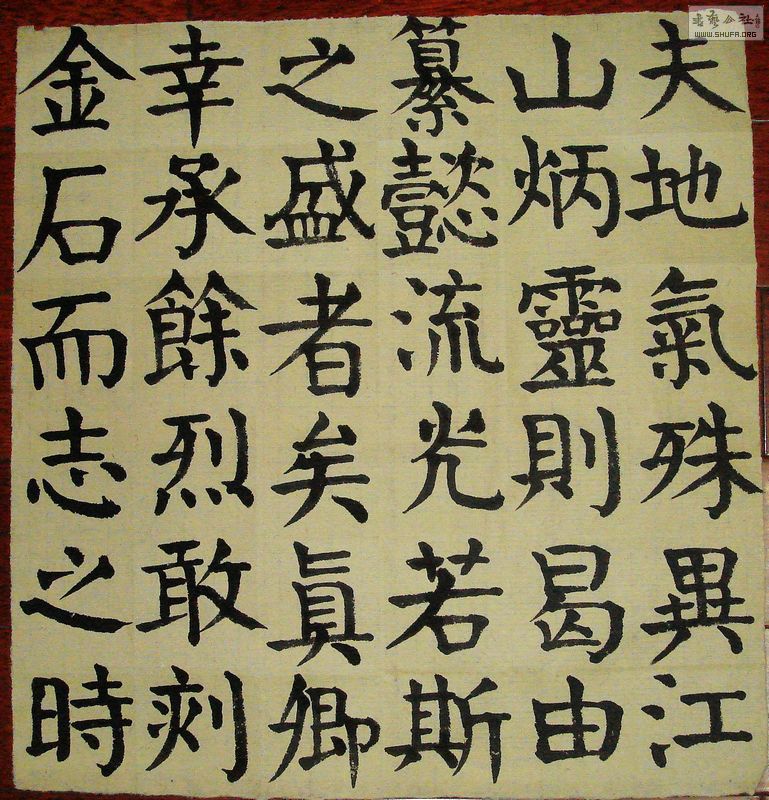 夫地氣殊異江
山炳靈則曷由
纂懿流光若斯
之盛者矣眞卿
幸承餘烈敢刻
金石而志之時
書藝公社
WWW.SHUFA.ORG